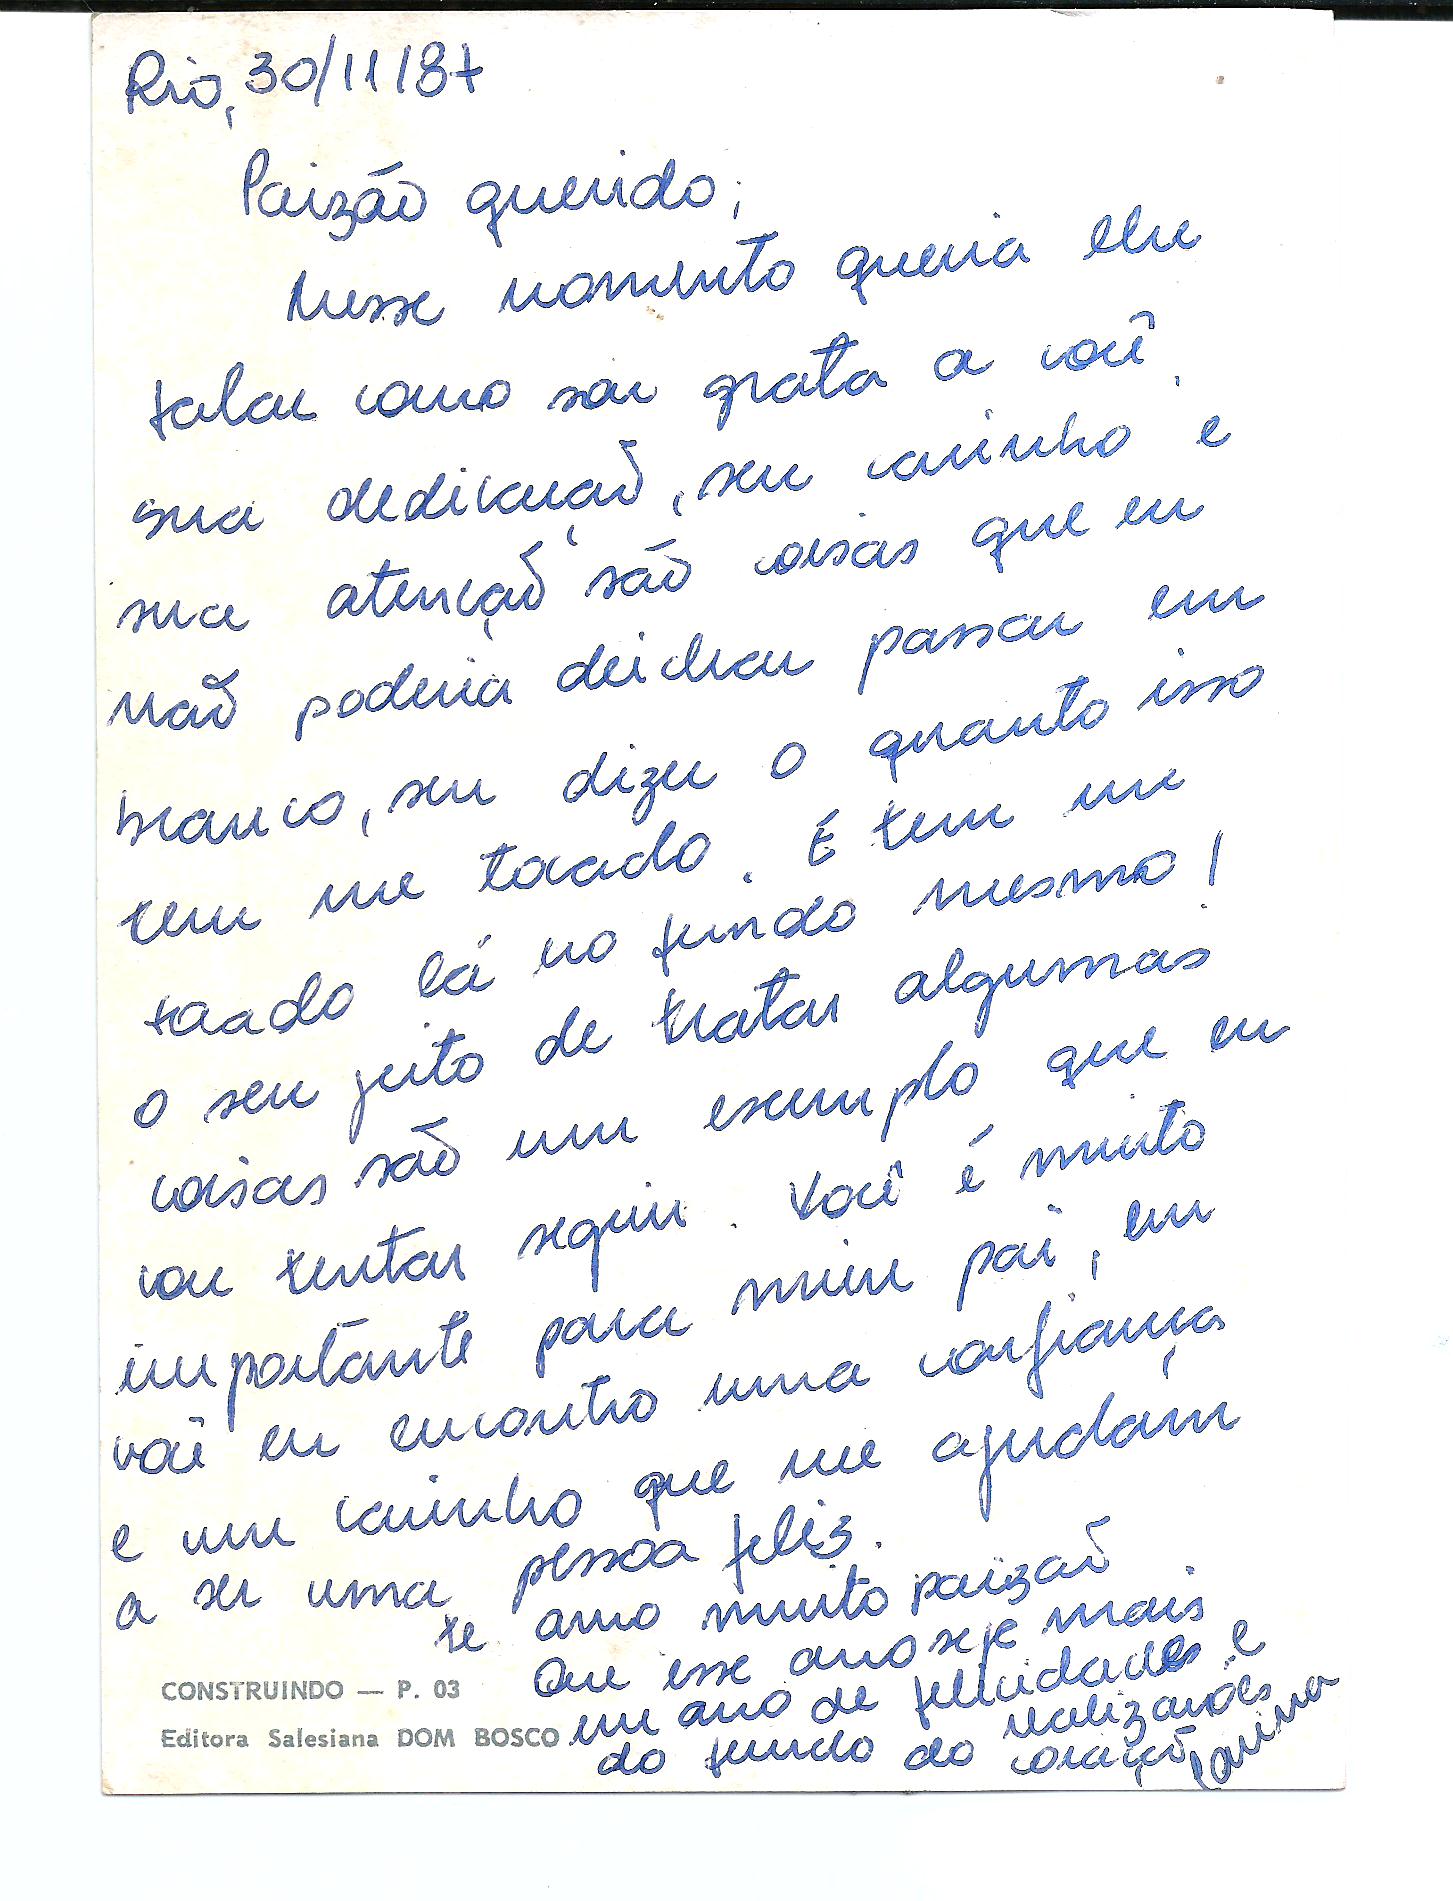 Rio, 30/11/87
Paizão querido,
Nesse momento queria lhe
falar como sou grata a você,
sua dedicação, seu carinho e
sua atenção são coisas que eu
não poderia deichar passar em
branco, sem dizer o quanto isso
tem me tocado. E tem me
tocado lá no fundo mesmo!
o seu jeito de tratar algumas
coisas são um exemplo que eu
vou tentar seguir. Você é muito
importante para mim pai, em
você eu encontro uma confiança
e um carinho que me ajudam
a ser uma pessoa feliz.
te amo muito paizão
Que esse ano seje mais
um ano de felicidades e
realizações
do fundo do coração
Carina
CONSTRUINDO — P. 03
Editora Salesiana DOM BOSCO